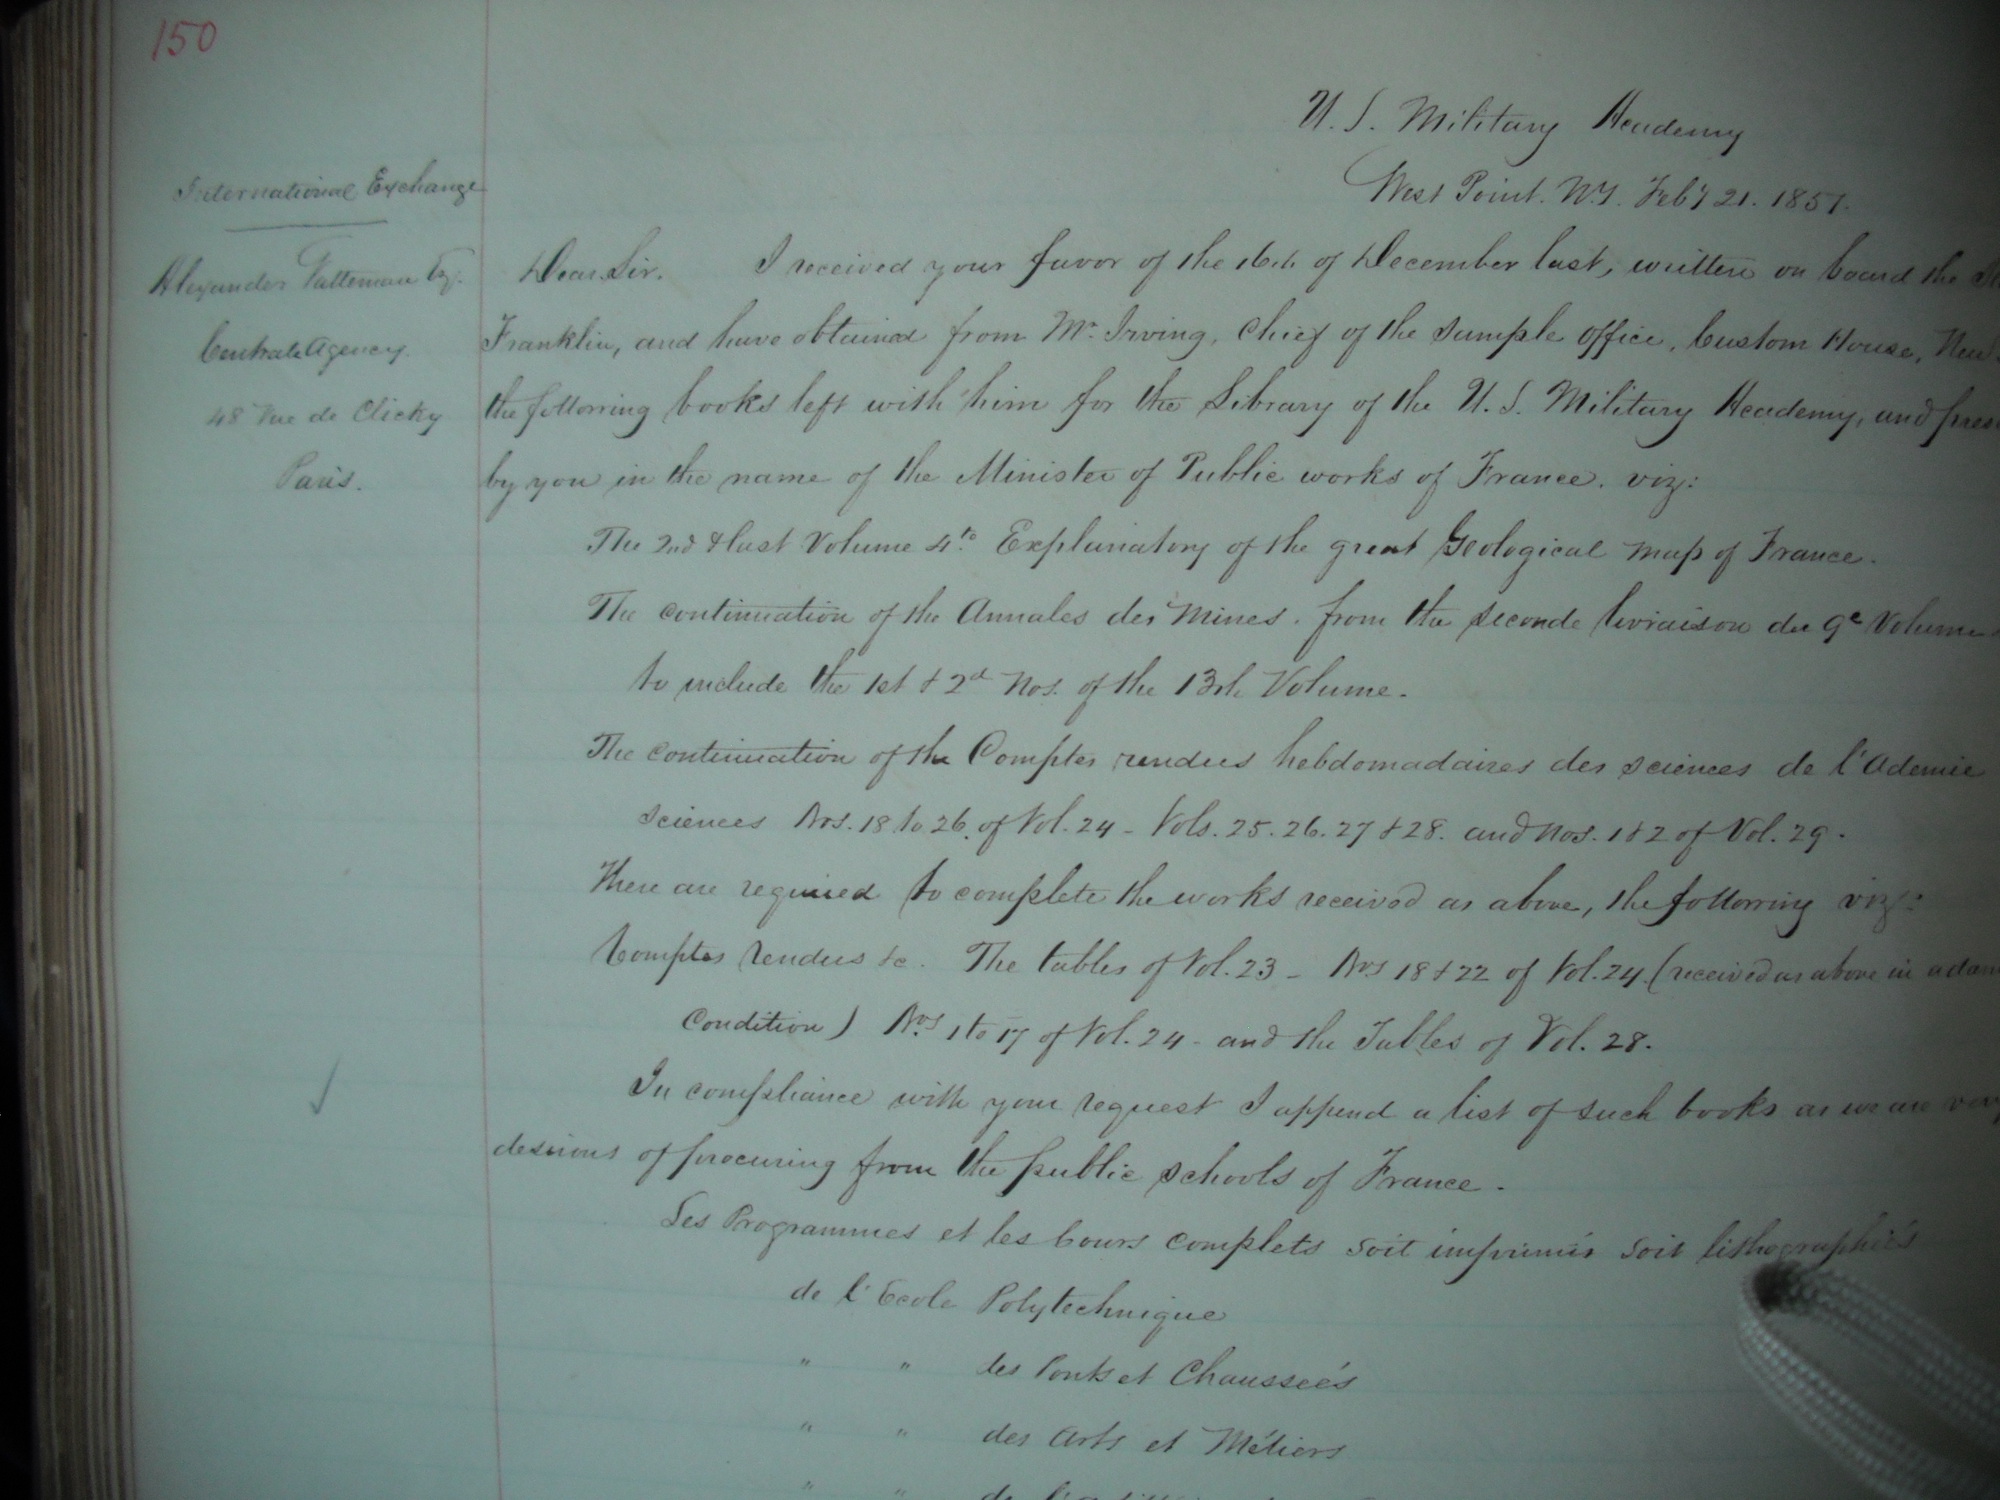 150
U. S. Military Academy
West Point. N.Y. Feb'y 21. 1851.
International Exchange
Alexander Vattemare Esq.
Central Agency.
48 Rue de Clichy
Paris.
Dear Sir. I received your favor of the 16th of December last, written on board the
Franklin, and have obtained from Mr. Irving, Chief of the Sample Office, Custom House, New
the following books left with him for the Library of the U. S. Military Academy, and
by you in the name of the Minister of Public works of France. viz:
The 2nd & last Volume 4to. Explanatory of the great Geological Map of France.
The continuation of the Annales des Mines. from the seconde livraison du 9e Volume
to include the 1st & 2d Nos. of the 13th Volume.
The continuation of the Comptes rendues hebdomadaires des sciences de l'Ademie
sciences Nos. 18 to 26. of Vol. 24 - Vols. 25. 26. 27 & 28. and Nos. 1 & 2 of Vol. 29.
There are required to complete the works received as above, the following viz:
Comptes rendues &c. The tables of Vol. 23 - Nos 18 & 22 of Vol. 24. (received as above in a
condition) Nos 1 to 17 of Vol. 24 - and the Tables of Vol. 28.
In compliance with your request I append a list of such books as we are very
desirous of procuring from the public schools of France.
Les Programmes et les Cours complets soit imprimés soit lithographiés
de l'Ecole Polytechnique
" " des Ponts et Chausseés
" " des Arts et Métiers
" " de